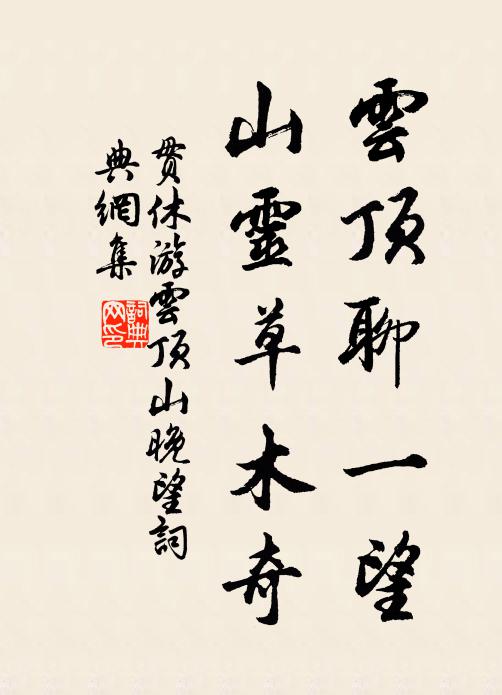 雲頂聊一望
山靈草木奇
貫休游雲頂山晚望詞
典網集
詞典網印